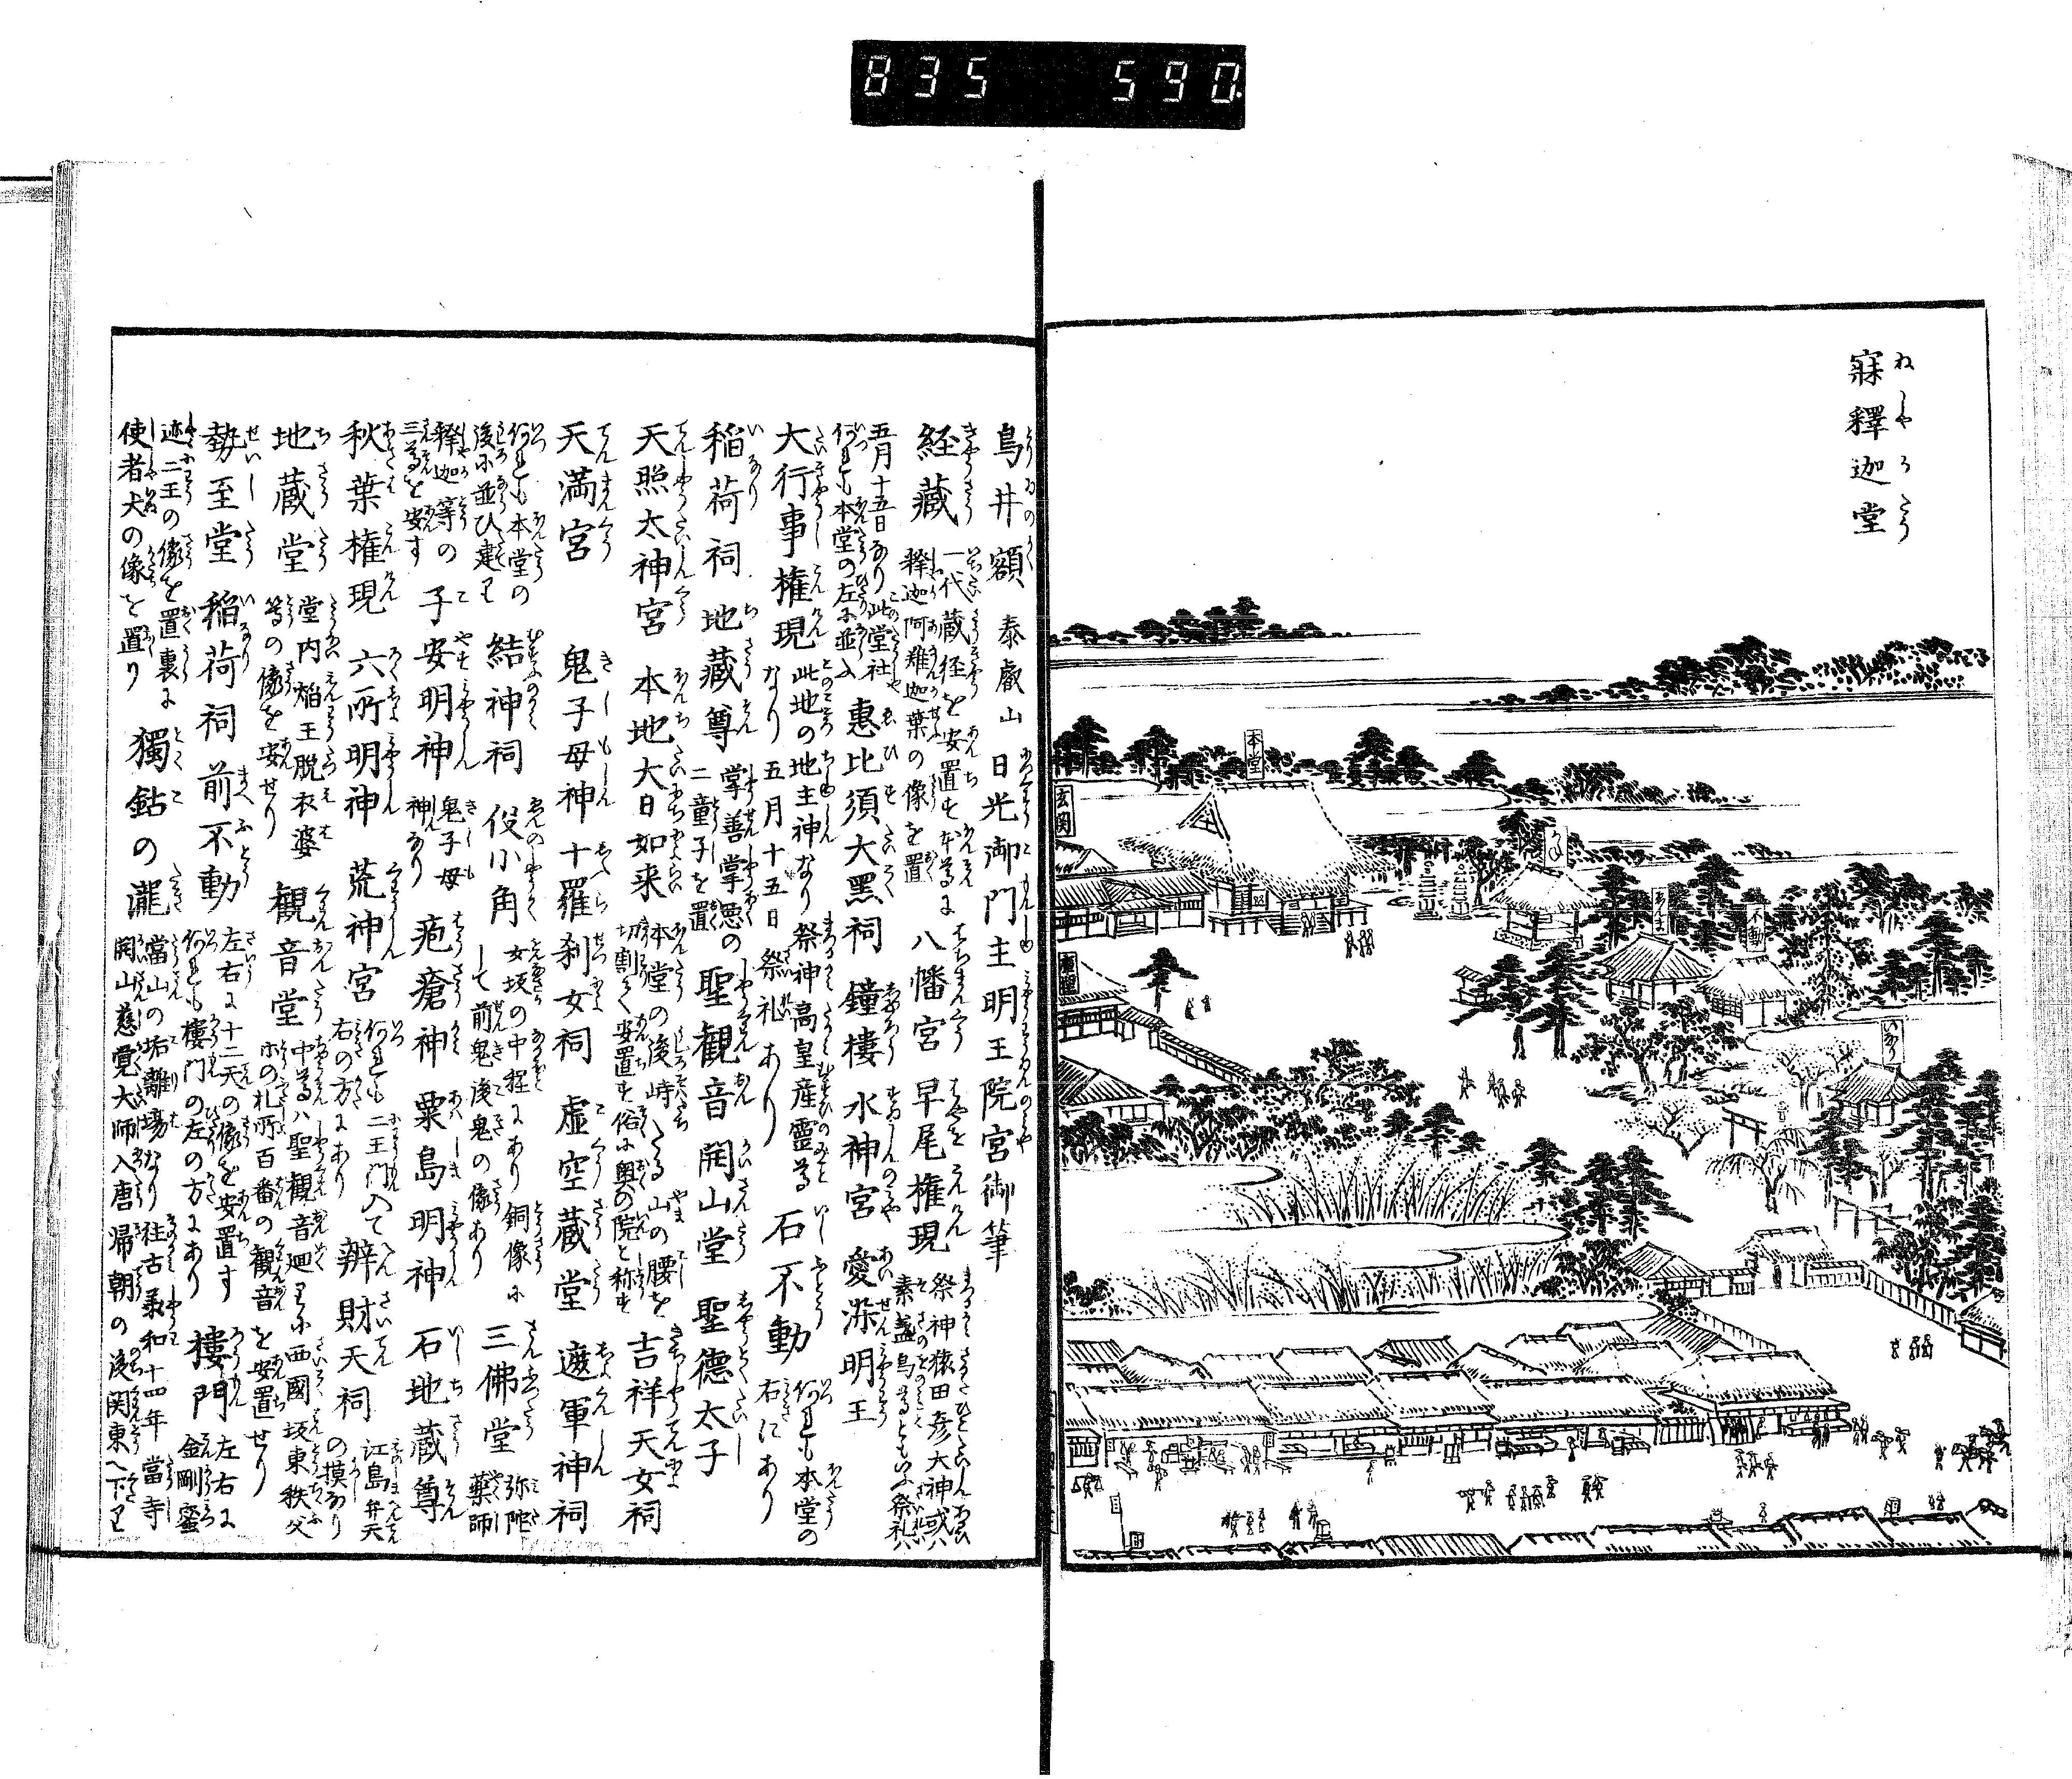 835 590
寐釋迦堂
本堂
玄関
不動
鳥井額 泰叡山 日光御門主明王院宮御筆
経蔵 一代蔵経を安置す本尊は
釋迦阿難迦葉の像を置
八幡宮 早尾権現 祭神猿田彦大神或ハ
素盞烏尊ともいふ祭礼ハ
五月十五日なり此堂社
何れも本堂の左に並ふ
惠比須大黑祠 鐘樓 水神宮 愛染明王
大行事権現 此地の地主神なり祭神高皇産靈尊
なり五月十五日祭礼あり
石不動 何れも本堂の
右にあり
稲荷祠 地蔵尊 二童子を置
掌善掌悪の
聖観音 開山堂 聖德太子
天照太神宮 本地大日如来 本堂の後峙たる山の腰を
切割て安置す俗に奥の院と称す
吉祥天女祠
天満宮 鬼子母神 十羅刹女祠 虚空蔵堂 遊軍神祠
何れも本堂の
後に並ひ建り
結神祠 役小角 女坂の中程にあり銅像に
して前鬼後鬼の像あり
三佛堂 弥陀
薬師
釋迦等の
三尊を安す
子安明神 鬼子母
神なり
疱瘡神 粟島明神 石地蔵尊
秋葉権現 六所明神 荒神宮 何れも二王門入て
右の方にあり
辨財天祠 江島弁天
の摸なり
地蔵堂 堂内焔王脱衣婆
等の像を安せり
観音堂 中尊ハ聖観音廻りに西國坂東秩父
の札所百番の観音を安置せり
勢至堂 稲荷祠 前不動 左右に十二天の像を安置す
何れも樓門の左の方にあり
樓門 左右に
金剛密
迹二王の像を置裏に
使者犬の像を置り
獨鈷の瀧 當山の垢離場なり往古承和十四年當寺
開山慈覚大師入唐帰朝の後関東へ下り